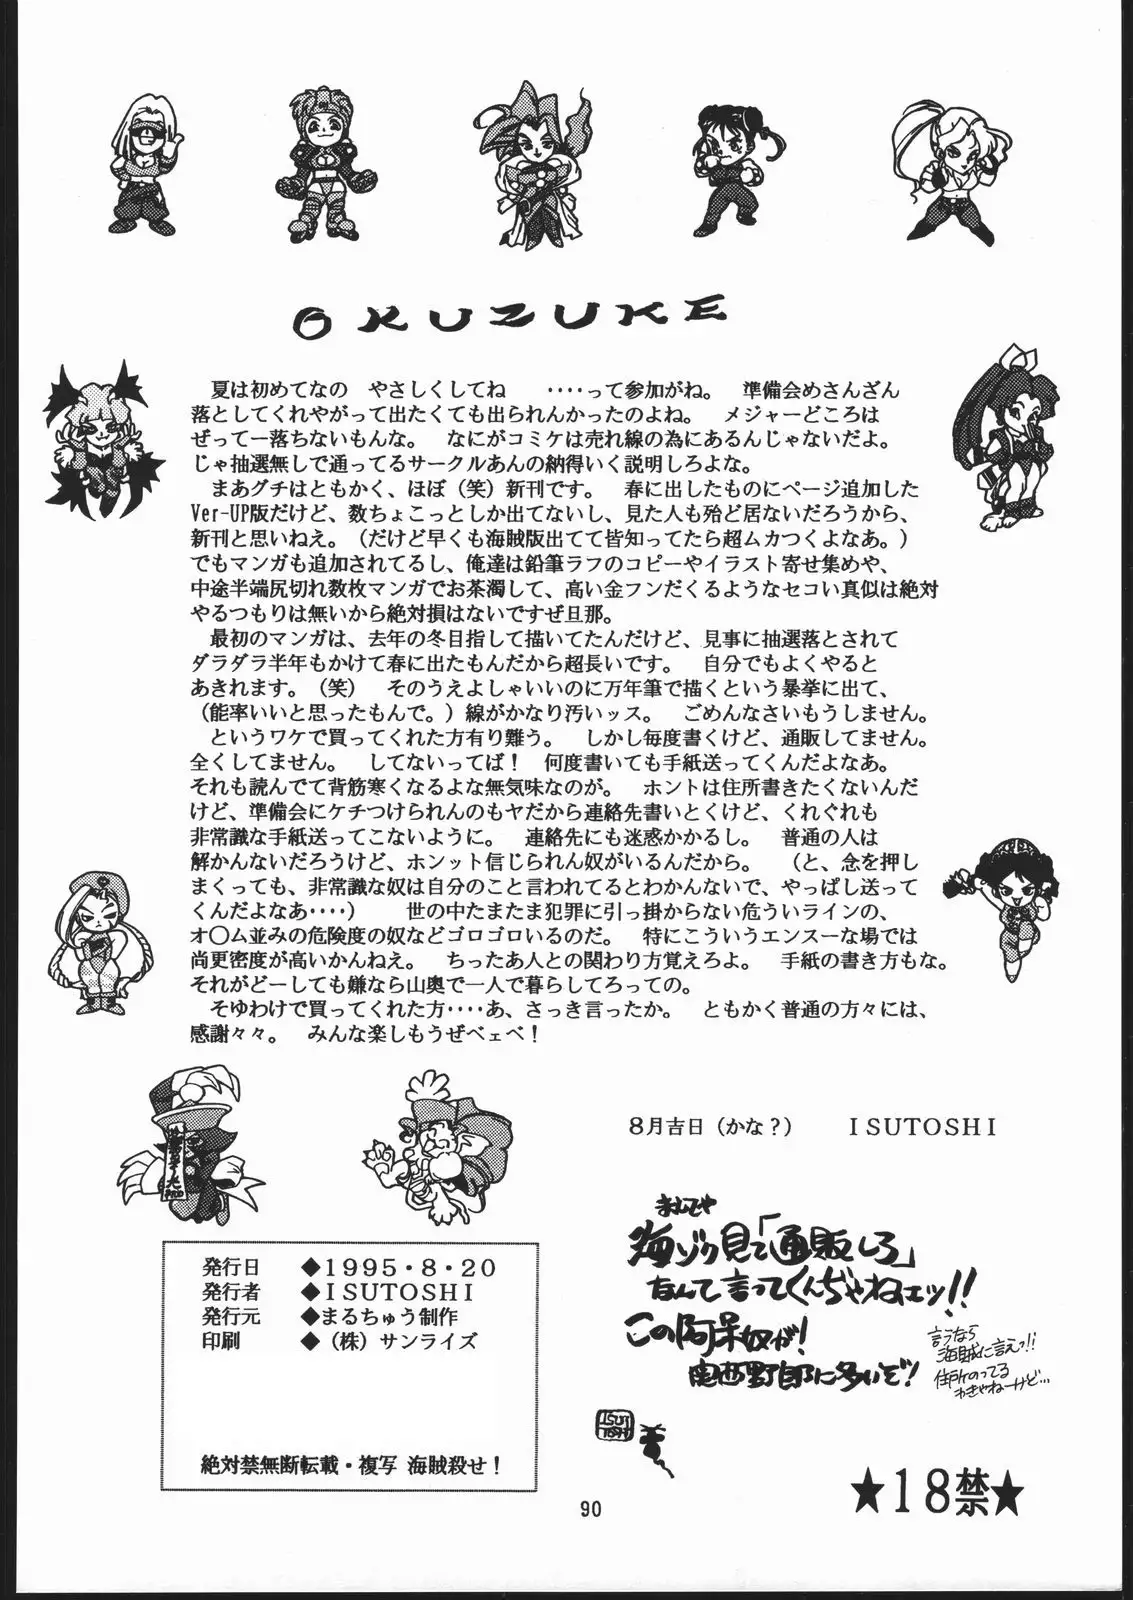 OKUZUKE
夏は初めてなの　やさしくしてね　‥‥って参加がね。　準備会めさんざん
落としてくれやがって出たくても出られんかったのよね。　メジャーどころは
ぜって一落ちないもんな。　なにがコミケは売れ線の為にあるんじゃないだよ。
じゃ抽選無しで通ってるサークルあんの納得いく説明しろよな。
まあグチはともかく、ほぼ（笑）新刊です。　春に出したものにページ追加した
Ver-UP版だけど、数ちょこっとしか出てないし、見た人も殆ど居ないだろうから、
新刊と思いねえ。（だけど早くも海賊版出てて皆知ってたら超ムカつくよなあ。）
でもマンガも追加されてるし、俺達は鉛筆ラフのコピーやイラスト寄せ集めや、
中途半端尻切れ数枚マンガでお茶濁して、高い金フンだくるようなセコい真似は絶対
やるつもりは無いから絶対損はないですぜ旦那。
最初のマンガは、去年の冬目指して描いてたんだけど、見事に抽選落とされて
ダラダラ半年もかけて春に出たもんだから超長いです。　自分でもよくやると
あきれます。（笑）　そのうえよしゃいいのに万年筆で描くという暴挙に出て、
（能率いいと思ったもんで。）線がかなり汚いッス。　ごめんなさいもうしません。
というワケで買ってくれた方有り難う。　しかし毎度書くけど、通販してません。
全くしてません。　してないってば！　何度書いても手紙送ってくんだよなあ。
それも読んでて背筋寒くなるよな無気味なのが。　ホントは住所書きたくないんだ
けど、準備会にケチつけられんのもヤだから連絡先書いとくけど、くれぐれも
非常識な手紙送ってこないように。　連絡先にも迷惑かかるし。　普通の人は
解かんないだろうけど、ホンット信じられん奴がいるんだから。　（と、念を押し
まくっても、非常識な奴は自分のこと言われてるとわかんないで、やっぱし送って
くんだよなあ‥‥）　世の中たまたま犯罪に引っ掛からない危ういラインの、
オ〇ム並みの危険度の奴などゴロゴロいるのだ。　特にこういうエンスーな場では
尚更密度が高いかんねえ。　ちったあ人との関わり方覚えろよ。　手紙の書き方もな。
それがどーしても嫌なら山奥で一人で暮らしてろっての。
そゆわけで買ってくれた方‥‥あ、さっき言ったか。　ともかく普通の方々には、
感謝々々。　みんな楽しもうぜベェベ！
８月吉日（かな？）　ＩＳＵＴＯＳＨＩ
ましてや
海ゾク見て「通販しろ」
なんて言ってくんぢゃねェッ!!
この阿呆奴が!
関西野郎に多いぞ!
言うなら
海賊に言えっ!!
住所のってる
わきゃねーけど…
ISUTOSHI
発行日　◆１９９５・８・２０
発行者　◆ＩＳＵＴＯＳＨＩ
発行元　◆まるちゅう制作
印刷　◆（株）サンライズ
絶対禁無断転載・複写 海賊殺せ！
★１８禁★
90